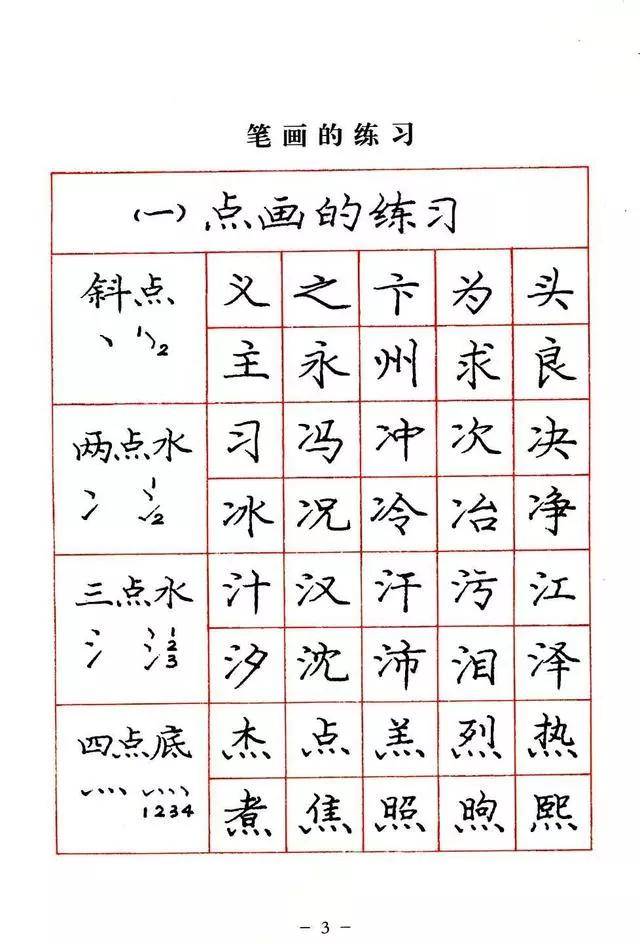 笔画的练习
（一）点画的练习
斜点
丶 1 2
义 之 卞 为 头
主 永 州 求 良
两点水
冫 1 2
习 冯 冲 次 决
冰 况 冷 冶 净
三点水
氵 1 2 3
汁 汉 汗 污 江
汐 沈 沛 泪 泽
四点底
灬 1234
杰 点 羔 烈 热
煮 焦 照 煦 熙
- 3 -